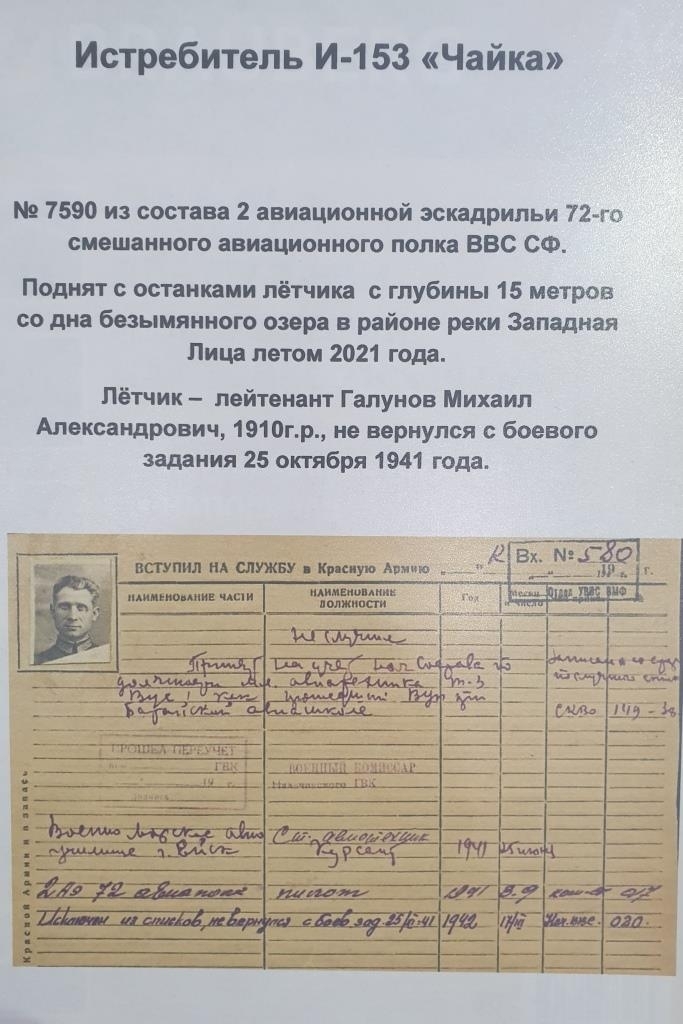 Истребитель И-153 «Чайка»
№ 7590 из состава 2 авиационной эскадрильи 72-го
смешанного авиационного полка ВВС СФ.
Поднят с останками лётчика с глубины 15 метров
со дна безымянного озера в районе реки Западная
Лица летом 2021 года.
Лётчик – лейтенант Галунов Михаил
Александрович, 1910г.р., не вернулся с боевого
задания 25 октября 1941 года.
ВСТУПИЛ НА СЛУЖБУ в Красную Армию „ “ г.
Вх. № 580
„ “ 19 г.
Отдел УВВС ВМФ
НАИМЕНОВАНИЕ ЧАСТИ НАИМЕНОВАНИЕ ДОЛЖНОСТИ Год
и число
Не служил
Принят на учет нач состава по
должности мл. авиатехника Т-3
Батайской авиашколе СКВО 149-38
ПРОШЕЛ ПЕРЕУЧЕТ
ГВК
19 г.
ВОЕННЫЙ КОМИССАР
ГВК
Военно Морское авио Ст. авиатехник
училище г. Ейск Курсант 1941
2 АЭ 72 авиаполк пилот 1941 3.9
Исключен из списков, не вернулся с боев. зад. 25/X-41 1942 17/III 020.
Красной Армии и в запасе